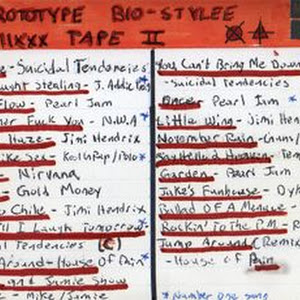 ROTOTYPE BIO-STYLEE
MIXXX TAPE II
- Suicidal Tendencies
ught Stealing - J. Addic
Flow - Pearl Jam
er Fuck You - N.W.A *
Haze - Jimi Hendrix
ike Sex -
- Nirvana
- Gold Money
o Chile - Jimi Hendrix
ll I Laugh Tomorrow - *
l Tendencies (C)
Around - House Of Pain *
and Jamie Show
e - Mike/Jamie
You Can't Bring Me Down
- Suicidal Tendencies
Pearl Jam *
Little Wing - Jimi Hen
November Rain - Guns/
Garden - Pearl Jam
Jake's Funhouse - Dy
Ballad Of A Menace -
Rockin To The P.M. - R
Jump Around (Remix
- House of Pain
* Number one song